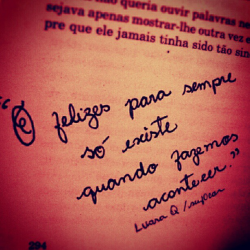 não queria ouvir palavras
sejava apenas mostrar-lhe outra vez
pre que ele jamais tinha sido tão
"O felizes para sempre
só existe
quando fazemos
acontecer."
Luara Q
294